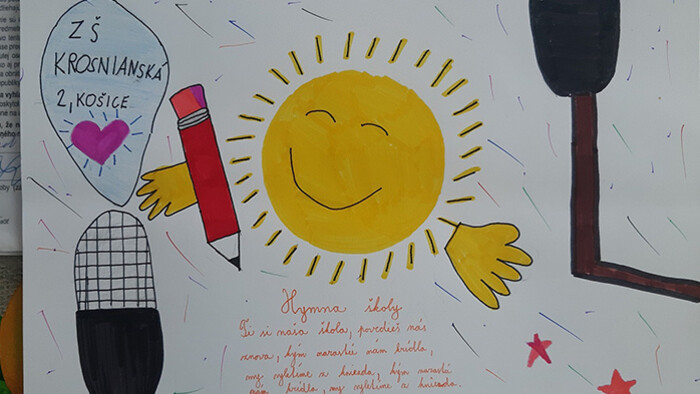 ZŠ
KROSNIANSKÁ
2, KOŠICE
Hymna školy
Ti si naša škola, povedieš nás
znova, kým narastú nám krídla,
my vyletíme z hniezda, kým narastú
nám krídla, my vyletíme z hniezda.